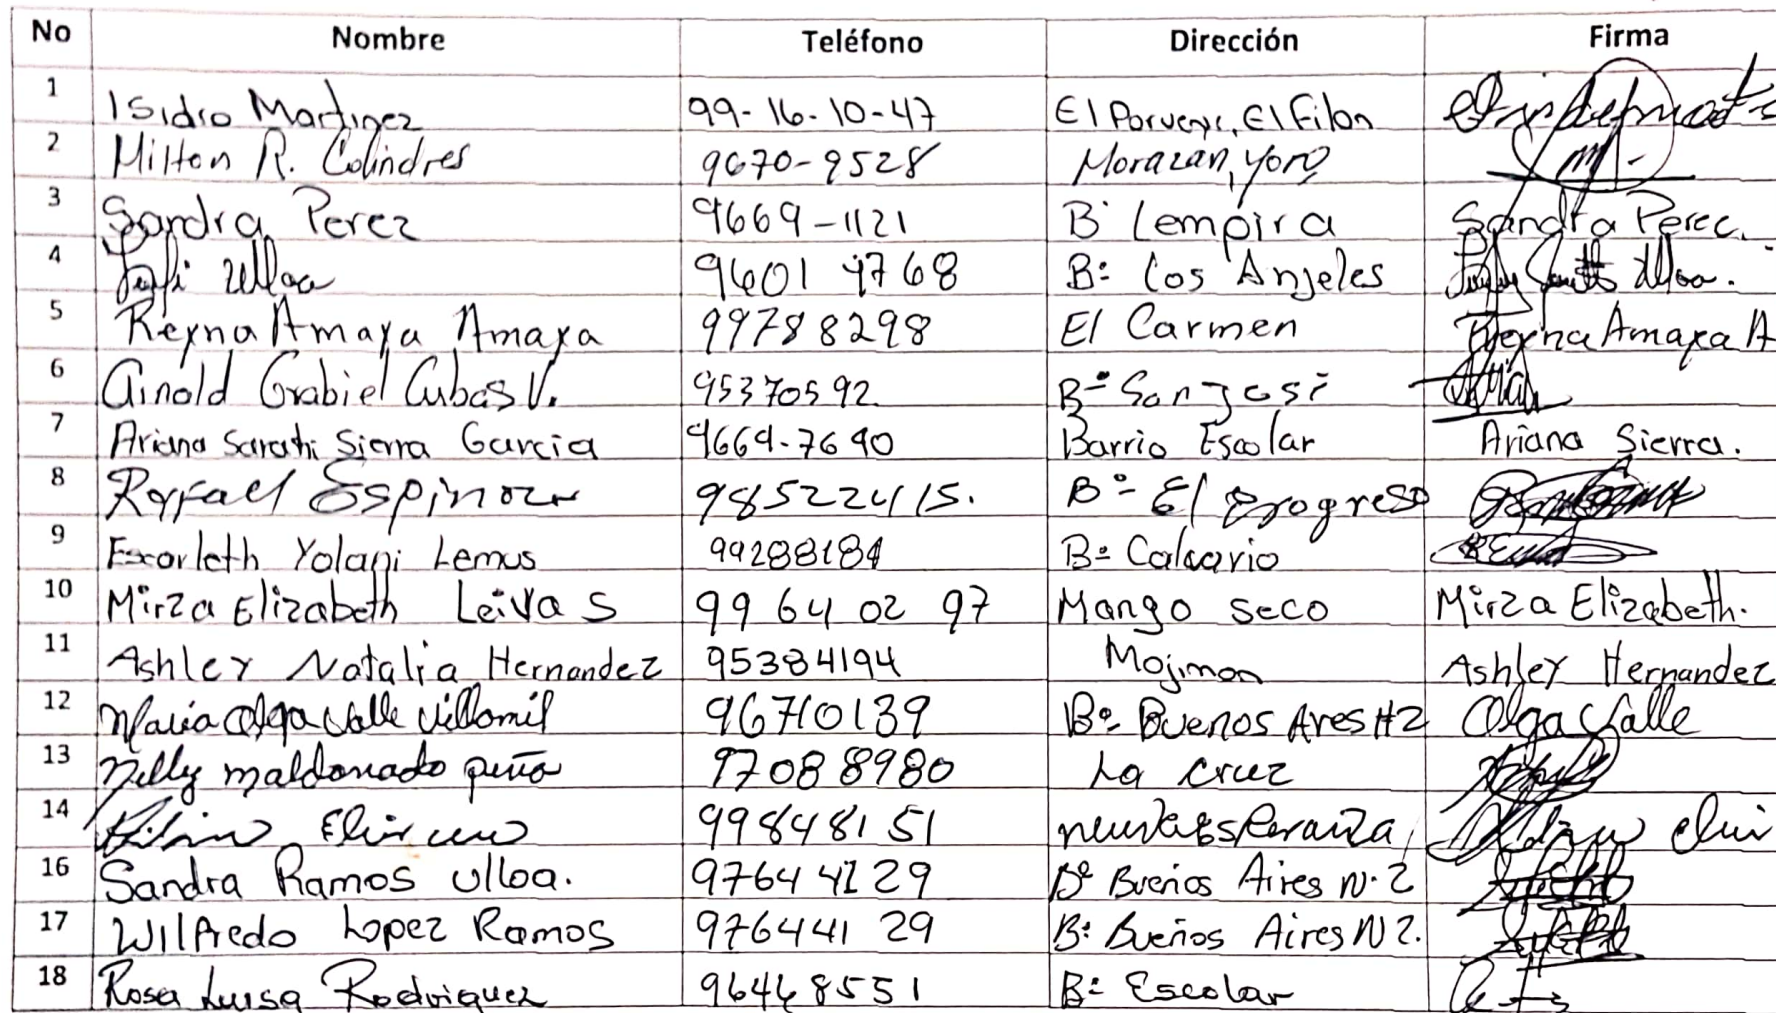 No Nombre Teléfono Dirección Firma
1 Isidro Martinez 99-16-10-47 El Porvenir, El Filon
2 Milton R. Colindres 9670-9528 Morazan, Yoro
3 Sandra Perez 9669-1121 B° Lempira Sandra Perez.
4 Ulloa 9601 4768 B° Los Anjeles Ulloa.
5 Reyna Amaya Amaya 99788298 El Carmen Reyna Amaya A
6 Arnold Grabiel Cubas V. 95370592 B° San Jose
7 Ariana Sarahi Sierra Garcia 9664-7640 Barrio Escolar Ariana Sierra.
8 Rafael Espinoza 98522415. B° El Progreso
9 Exorleth Yolani Lemus 99288184 B° Calvario
10 Mirza Elizabeth Leiva S 99 64 02 97 Mango seco Mirza Elizabeth.
11 Ashley Natalia Hernandez 95384194 Mojiman Ashley Hernandez
12 Maria Olga Valle Villamil 96710139 B° Buenos Ares #2 Olga Valle
13 Nelly maldonado peña 97088980 La cruz
14 99848151 nueva Esperanza
16 Sandra Ramos Ulloa. 97644129 B° Buenos Aires N. 2
17 Wilfredo Lopez Ramos 97644129 B° Buenos Aires N 2.
18 Rosa Luisa Rodriguez 96468551 B° Escolar